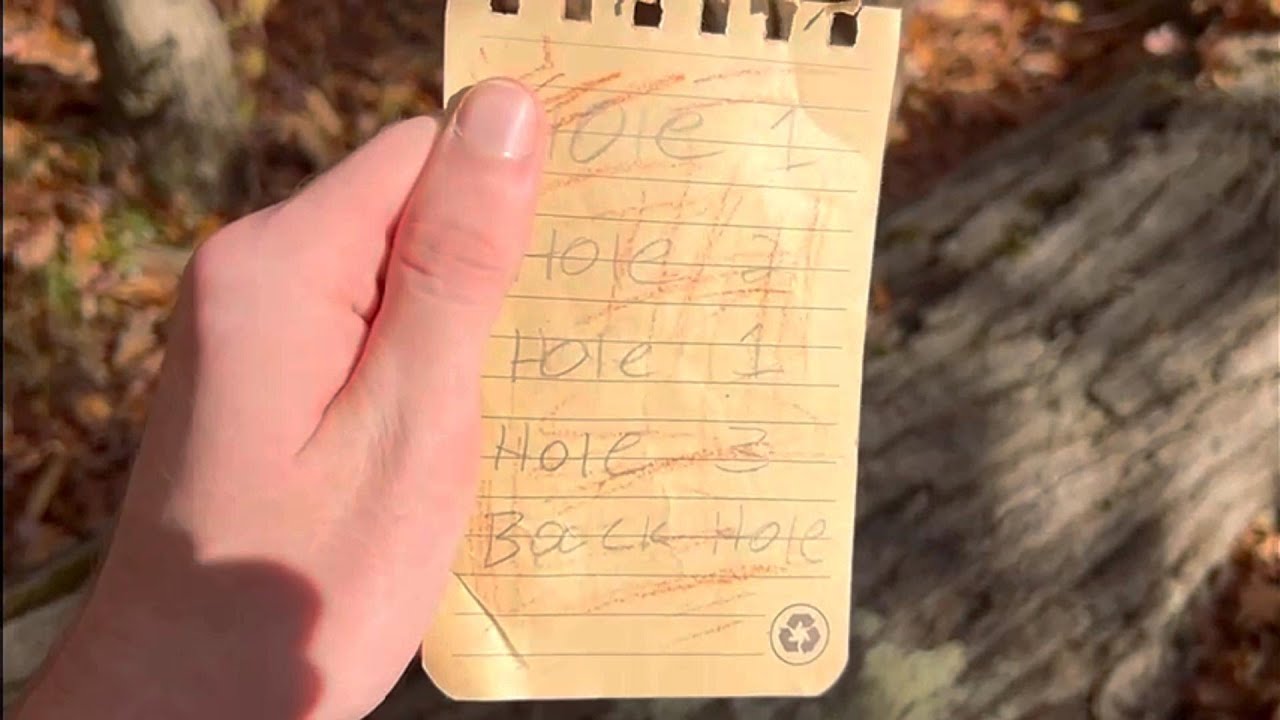 Hole 1
Hole 2
Hole 1
Hole 3
Back Hole